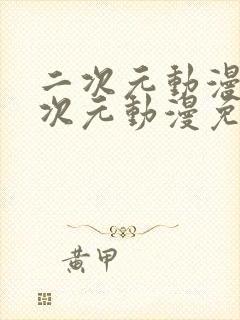 二次元動漫
次元動漫免
黃甲